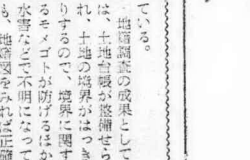 ている。
地籍調査の成果として
は、土地台帳が整備せら
れ、土地の境界がはっき
りするので、境界に関す
るモメゴトが防げるほか
水害などで不明になって
も、地籍図をみれば正確